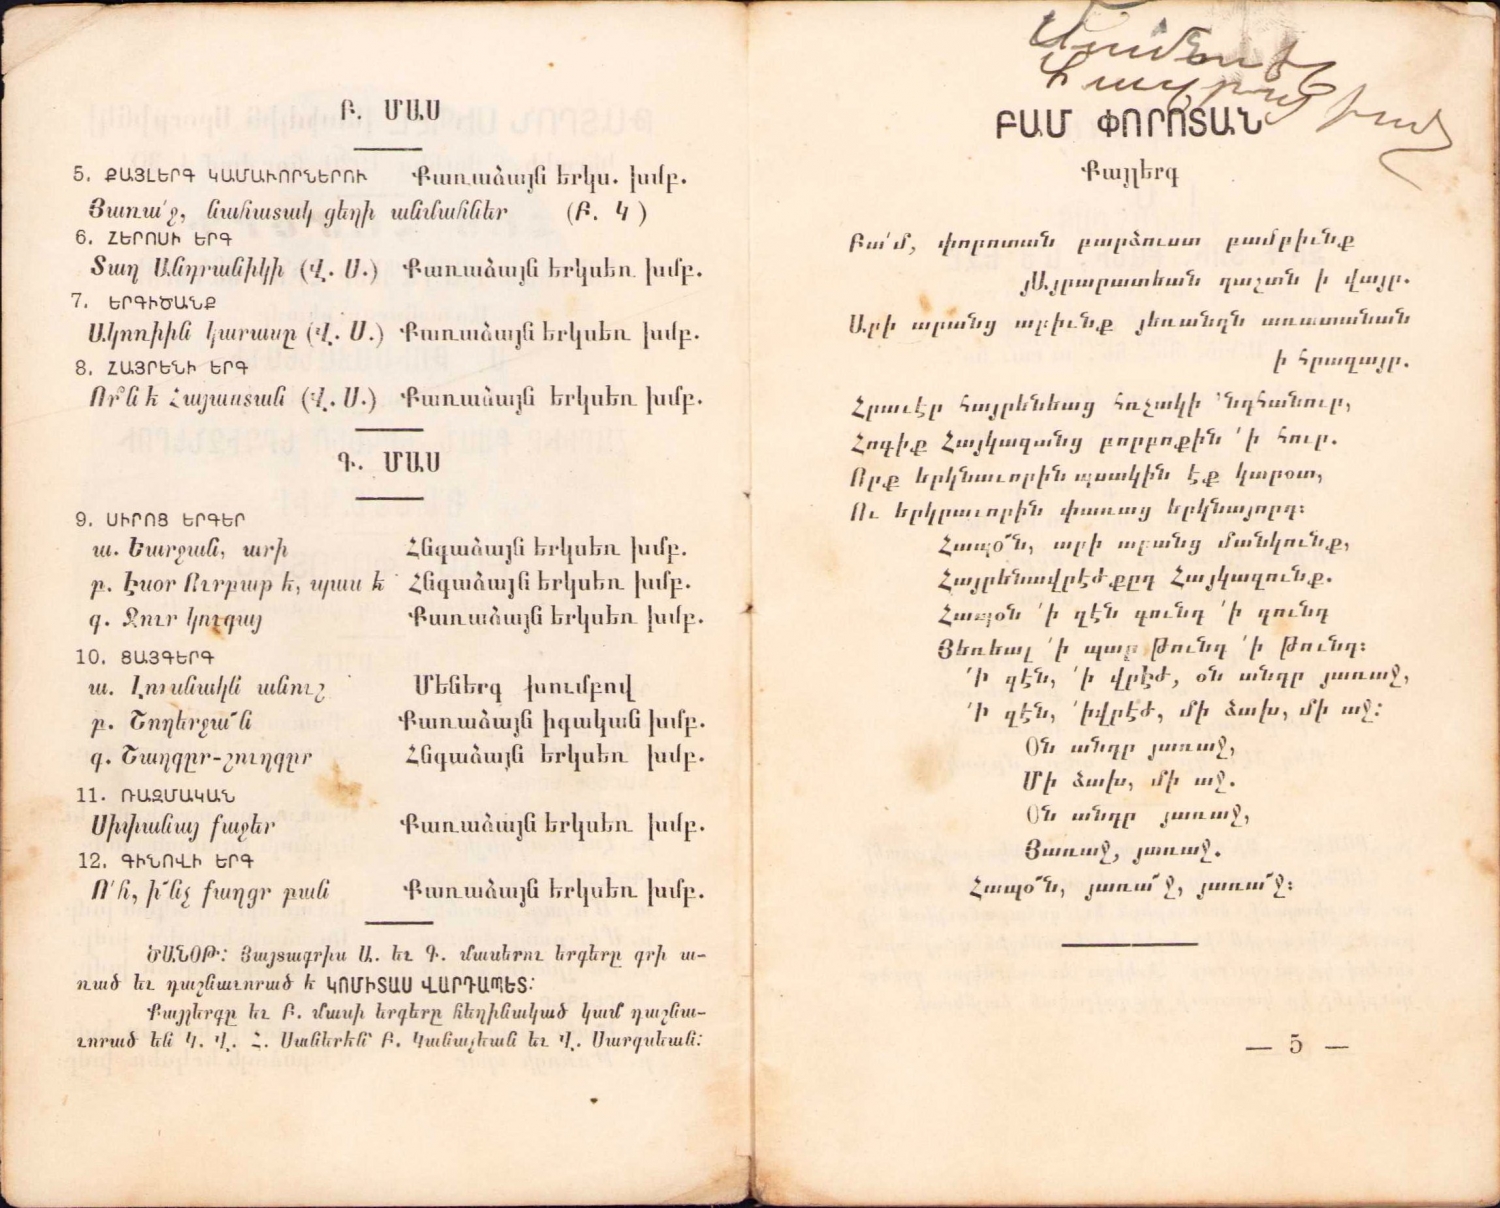 Բ. ՄԱՍ
5. ՔԱՅԼԵՐԳ ԿԱՄԱՒՈՐՆԵՐՈՒ Քառաձայն երկս. խմբ.
Յառա՛ջ, նահատակ ցեղի անմահներ (Բ. Կ)
6. ՀԵՐՈՍԻ ԵՐԳ
Տաղ Անդրանիկի (Վ. Ս.) Քառաձայն երկսեռ խմբ.
7. ԵՐԳԻԾԱՆՔ
Ակոռիին կարասը (Վ. Ս.) Քառաձայն երկսեռ խմբ.
8. ՀԱՅՐԵՆԻ ԵՐԳ
Ո՞րն է Հայաստան (Վ. Ս.) Քառաձայն երկսեռ խմբ.
Գ. ՄԱՍ
9. ՍԻՐՈՑ ԵՐԳԵՐ
ա. Եարջան, արի Հնգաձայն երկսեռ խմբ.
բ. Էսօր Ուրբաթ է, պաս է Հնգաձայն երկսեռ խմբ.
գ. Ջուր կուգայ Քառաձայն երկսեռ խմբ.
10. ՑԱՅԳԵՐԳ
ա. Լուսնակն անուշ Մեներգ խումբով
բ. Շողերջա՜ն Քառաձայն իգական խմբ.
գ. Շաղգըր-շուղգըր Հնգաձայն երկսեռ խմբ.
11. ՌԱԶՄԱԿԱՆ
Սիփանայ քաջեր Քառաձայն երկսեռ խմբ.
12. ԳԻՆՈՎԻ ԵՐԳ
Ո՛հ, ի՜նչ քաղցր բան Քառաձայն երկսեռ խմբ.
ԾԱՆՕԹ։ Յայտագրիս Ա. եւ Գ. մասերու երգերը գրի ա-
ռած եւ դաշնաւորած է ԿՈՄԻՏԱՍ ՎԱՐԴԱՊԵՏ։
Քայլերգը եւ Բ. մասի երգերը հեղինակած կամ դաշնա-
ւորած են Կ. Վ. Հ. Սաներէն՝ Բ. Կանաչեան եւ Վ. Սարգսեան։
ԲԱՄ ՓՈՐՈՏԱՆ
Քայլերգ
Բա՛մ, փորոտան բարձուստ բամբիւնք
յԱյրարատեան դաշտն ի վայր.
Արի արանց աչիւնք յեռանդն առատանան
ի հրաղայր.
Հրաւէր հայրենեաց հռչակի ՚նդհանուր,
Հոգիք Հայկազանց բորբոքին ՚ի հուր.
Որք երկնաւորին պսակին էք կարօտ,
Ու երկրաւորին փառաց երկնայորդ։
Հապօ՜ն, արի արանց մանկունք,
Հայրենավրէժքըդ Հայկազունք.
Հապօն ՚ի զէն գունդ ՚ի գունդ
Յեռեալ ՚ի պար թունդ ՚ի թունդ։
՚Ի զէն, ՚ի վրէժ, օն անդր յառաջ,
՚Ի զէն, ՚իվրէժ, մի ձախ, մի աջ։
Օն անդր յառաջ,
Մի ձախ, մի աջ.
Օն անդր յառաջ,
Յառաջ, յառաջ.
Հապօ՜ն, յառա՜ջ, յառա՜ջ։
— 5 —